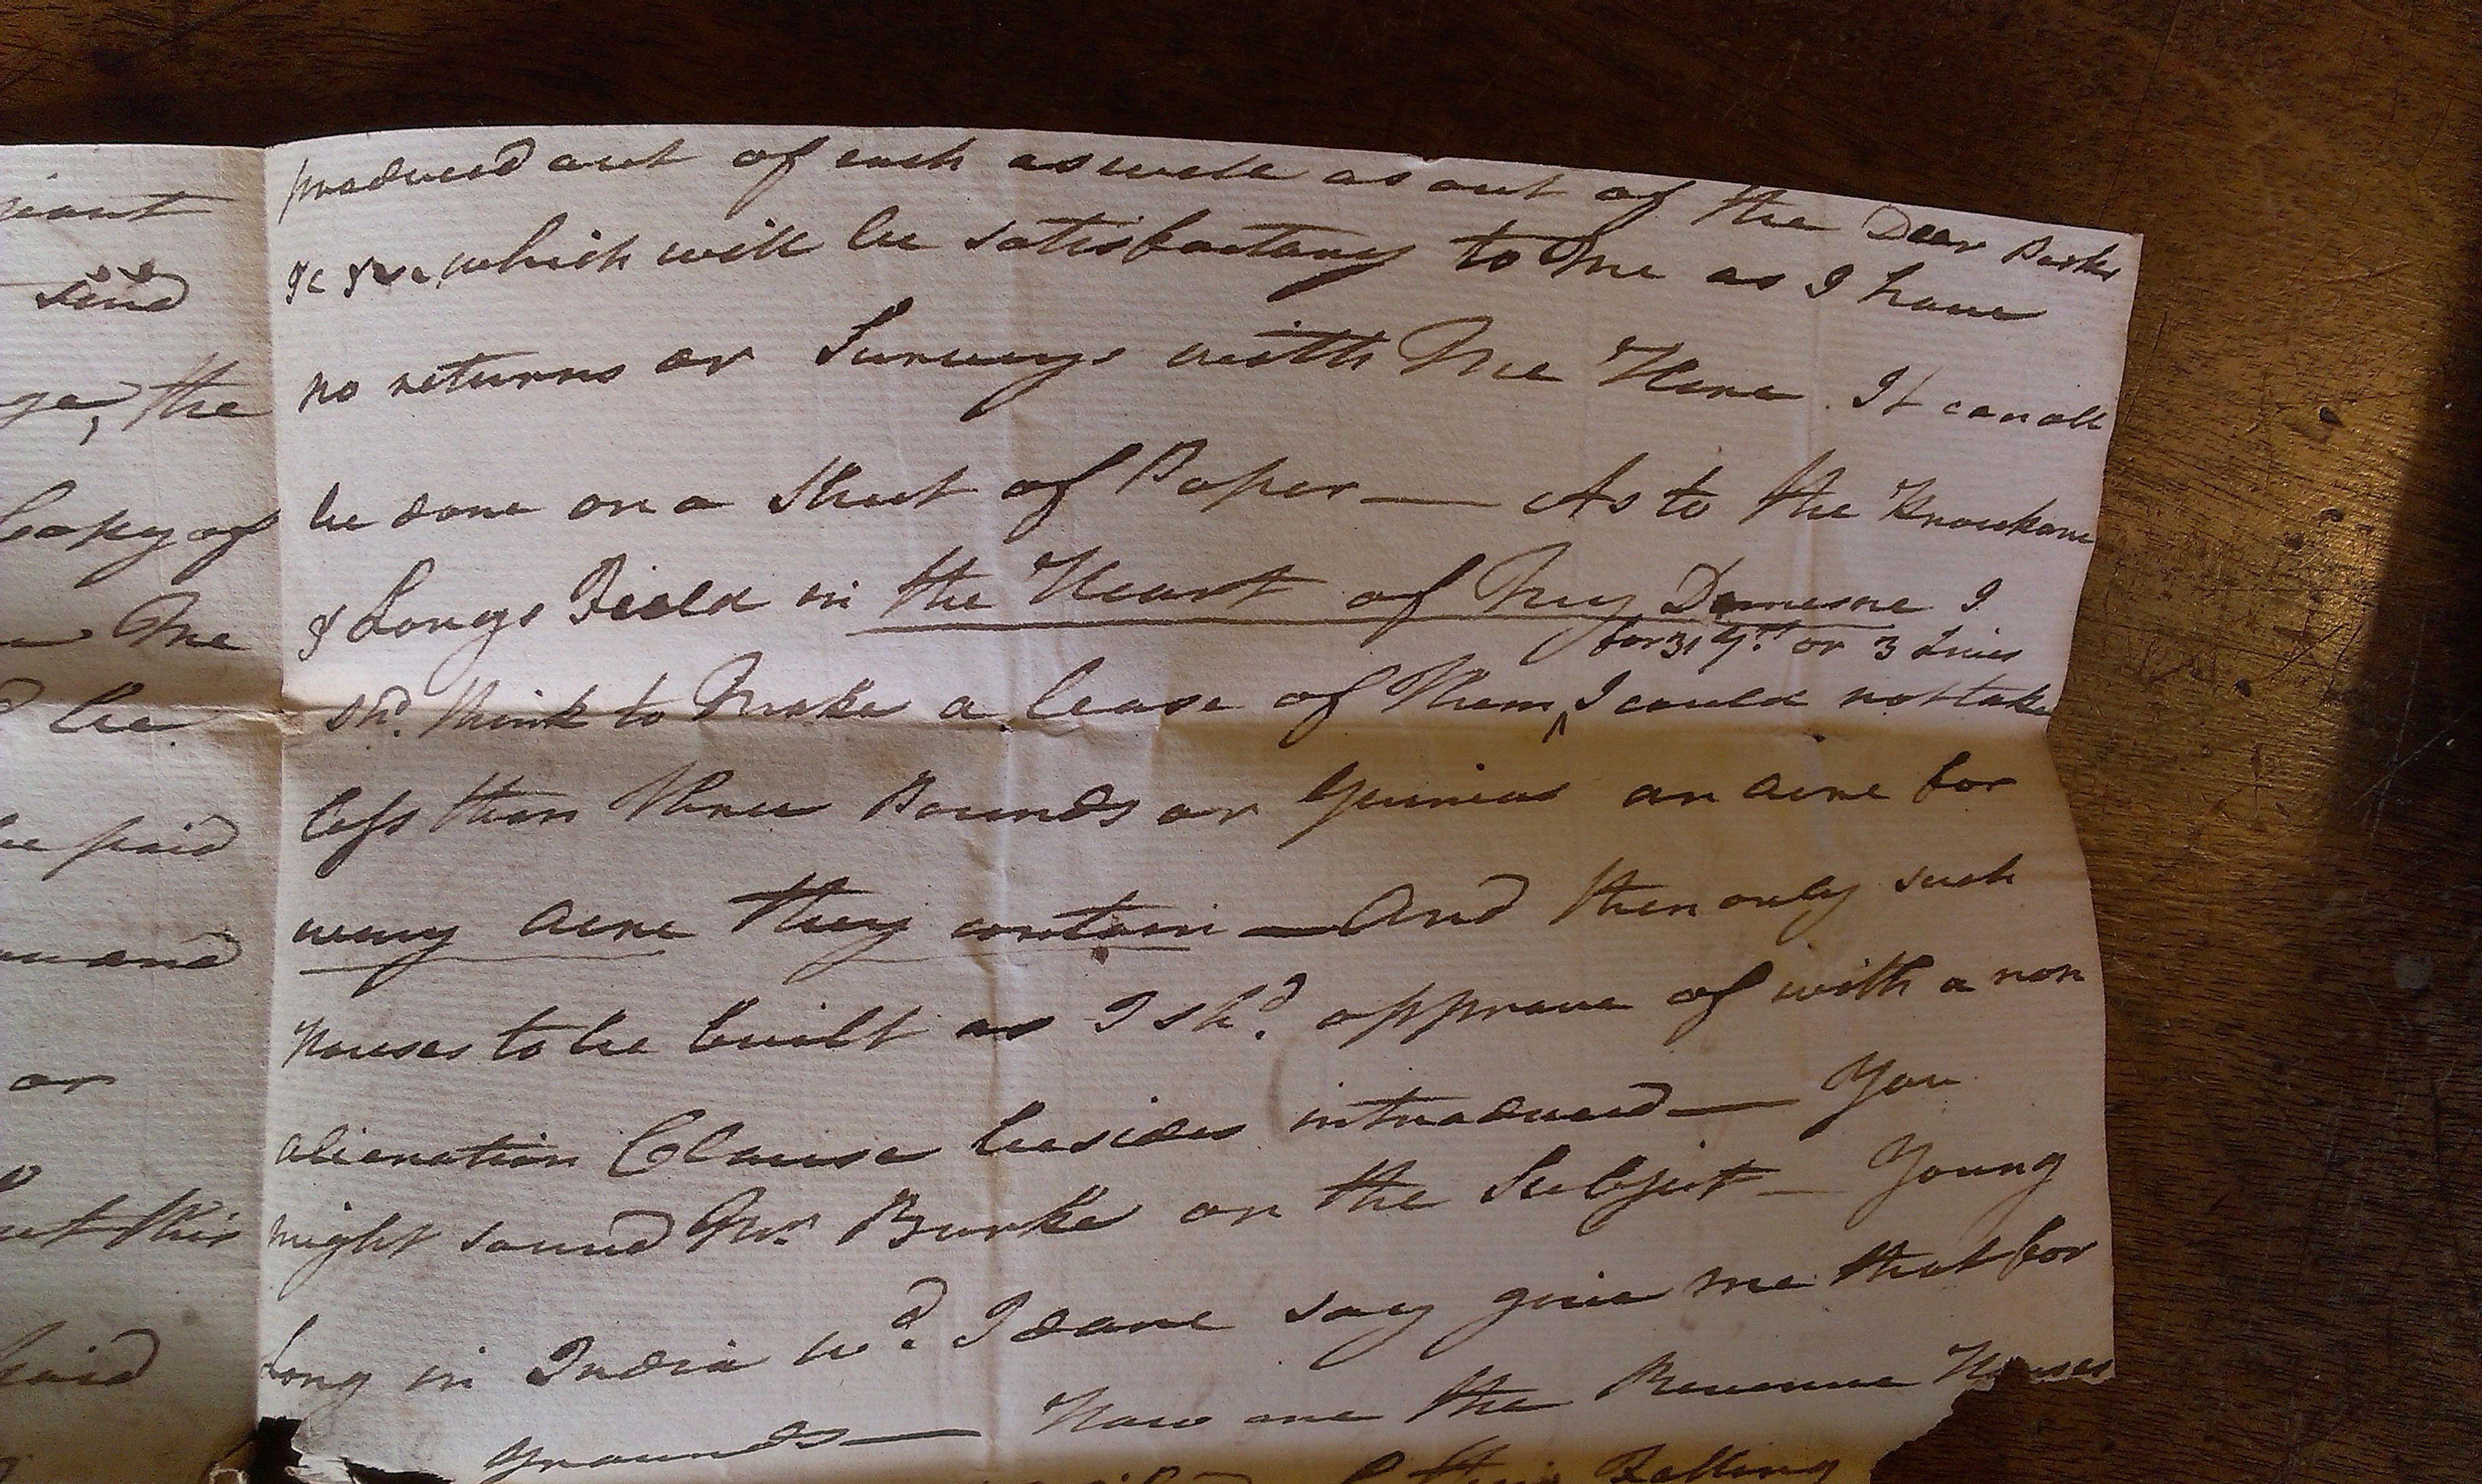 produced out of each as well as out of the Deer Parks
&c &c, which will be satisfactory to Me as I have
no returns or Surveys with Me Here. It can all
be done on a Sheet of Paper — As to the Knockane
& Longs Field in the Heart of My Demesne I
for 31 Yrs. or 3 Lives
shd. think to Make a lease of Them, I could not take
less then Three Pounds or Guineas an acre for
every acre they contain — And then only such
Houses to be built as I shd. approve of with a non
alienation Clause besides introduced — You
might sound Mr. Burke on the Subject — Young
Long in India wd. I dare say give me that for
Grounds — How are the Revenue Houses
Falling
niant
send
ge, the
Copy of
Me
be
be paid
or
this
paid